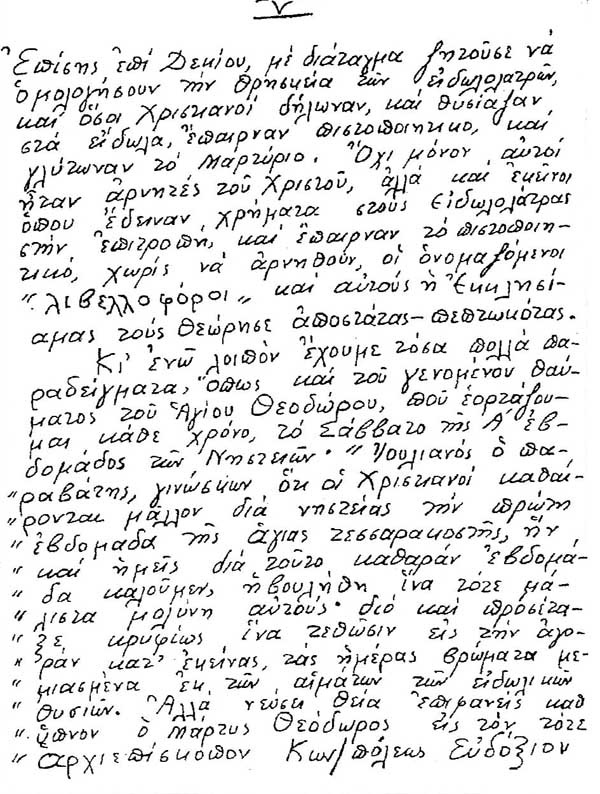 V
Ἐπίσης ἐπί Δεκίου, μέ διάταγμα ζητοῦσε νά
ὁμολογήσουν τήν θρησκεία τῶν εἰδωλολατρῶν,
καί ὅσοι Χριστιανοί δήλωναν, καί θυσίαζαν
στά εἴδωλα, ἔπαιρναν πιστοποιητικο, καί
γλύτωναν τό μαρτύριο. Ὄχι μόνον αὐτοί
ἦταν ἀρνητές τοῦ Χριστοῦ, ἀλλά καί ἐκεῖνοι
ὅπου ἔδειναν χρήματα στούς εἰδωλολάτρας
στήν ἐπιτροπή, καί ἔπαιρναν τό πιστοποιη-
τικό, χωρίς νά ἀρνηθοῦν, οἱ ὀνομαζόμενοι
"λιβελλοφόροι" καί αὐτούς ἡ Ἐκκλησί-
αμας τούς θεώρησε ἀποστάτας-πεπτωκότας.
Κι' ἐνῶ λοιπόν ἔχουμε τόσα πολλά πα-
ραδείγματα, ὅπως καί τοῦ γενομένου θαύ-
ματος τοῦ Ἁγίου Θεοδώρου, πού ἑορτάζου-
μαι κάθε χρόνο, τό Σάββατο τῆς Α' ἑβ-
δομάδος τῶν Νηστειῶν· "Ἰουλιανός ὁ πα-
"ραβάτης, γινώσκων ὅτι οἱ Χριστιανοί καθαί-
"ρονται μᾶλλον διά νηστείας τήν πρώτη
"ἑβδομάδα τῆς ἁγίας τεσσαρακοστῆς, ἥν
"καί ἡμεῖς διά τοῦτο καθαράν ἑβδομά-
"δα καλοῦμεν, ἠβουλήθη ἵνα τότε μά-
"λιστα μολύνη αὐτούς· διό καί προσέτα-
"ξε κρυφίως ἵνα τεθῶσιν εἰς τήν ἀγο-
"ράν κατ' ἐκείνας, τάς ἡμέρας βρώματα με-
"μιασμένα ἐκ τῶν αἱμάτων τῶν εἰδωλικῶν
"θυσιῶν. Ἀλλά νεύσει θεία ἐπιφανείς καθ
"ὕπνον ὁ Μάρτυς Θεόδωρος εἰς τόν τότε
"ἀρχιεπίσκοπον Κων/πόλεως Εὐδόξιον